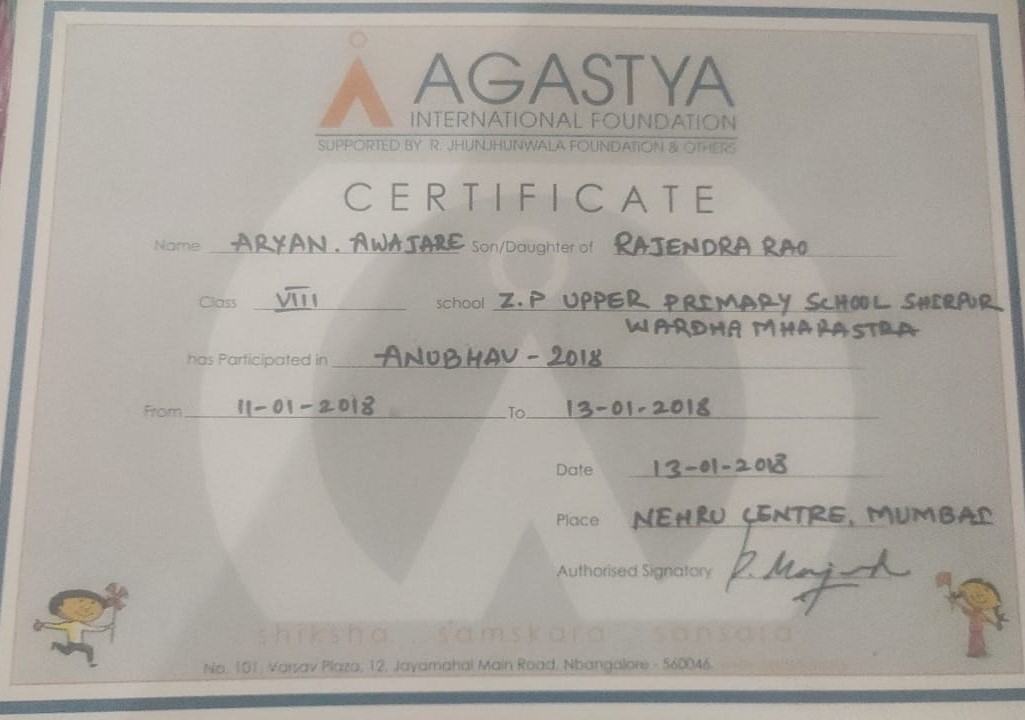 AGASTYA
INTERNATIONAL FOUNDATION
SUPPORTED BY R. JHUNJHUNWALA FOUNDATION & OTHERS
CERTIFICATE
Name ARYAN. AWAJARE Son/Daughter of RAJENDRA RAO
Class VIII school Z.P UPPER PRIMARY SCHOOL SHIRPUR
WARDHA MHARASTRA
has Participated in ANUBHAV - 2018
From 11-01-2018 To 13-01-2018
Date 13-01-2018
Place NEHRU CENTRE, MUMBAI
Authorised Signatory
shiksha samskara sansara
No. 101, Varsav Plaza, 12, Jayamahal Main Road, Nbangalore - 560046.